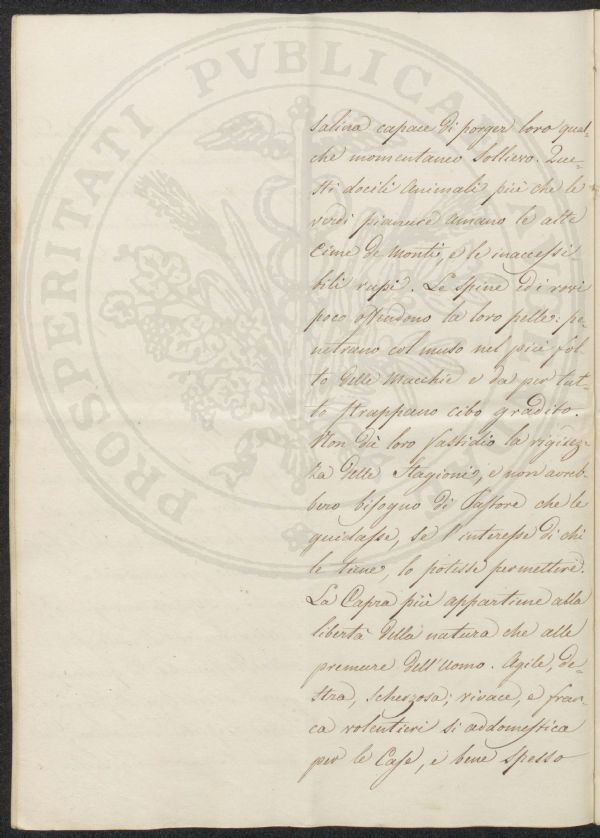 PROSPERITATI PVBLICAE
salina capace di porger loro qual-
che momentaneo sollievo. Que-
sti docili animali più che le
verdi pianure amano le alte
Cime de Monti, e le inaccessi-
bili rupi. Le Spine ed i rovi
poco offendono la loro pelle: pe-
netrano col muso nel più fol-
to delle Macchie e da per tut-
to strappano cibo gradito.
Non dà loro fastidio la rigidez-
za delle Stagioni, e non avreb-
bero bisogno di Pastore che le
guidasse, se l'interesse di chi
le tiene, lo potesse permettere.
La Capra più appartiene alla
libertà della natura che alle
premure dell'Uomo. Agile, de-
stra, scherzosa; vivace, e fran-
ca volentieri si addomestica
per le Case, e bene spesso